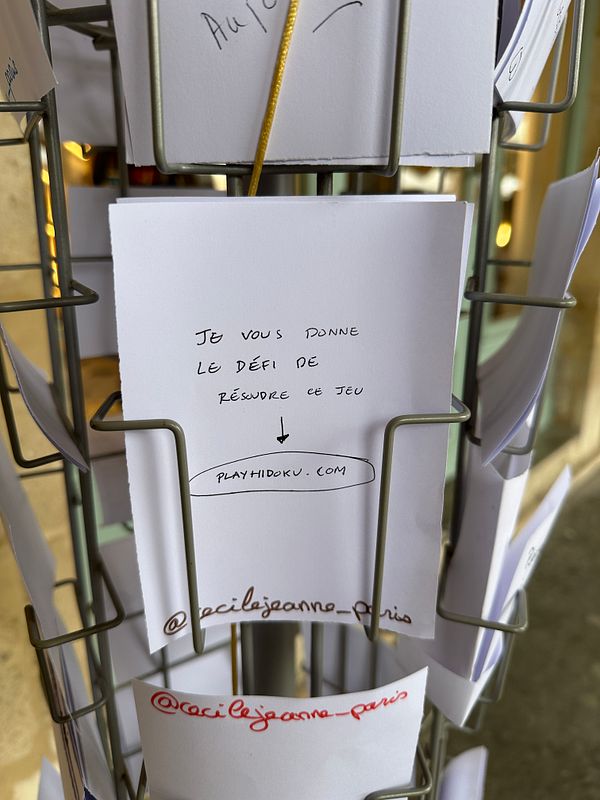 JE VOUS DONNE
LE DÉFI DE
RÉSOUDRE CE JEU
PLAYHIDOKU.COM
@cecilejeanne_paris
@cecilejeanne_paris